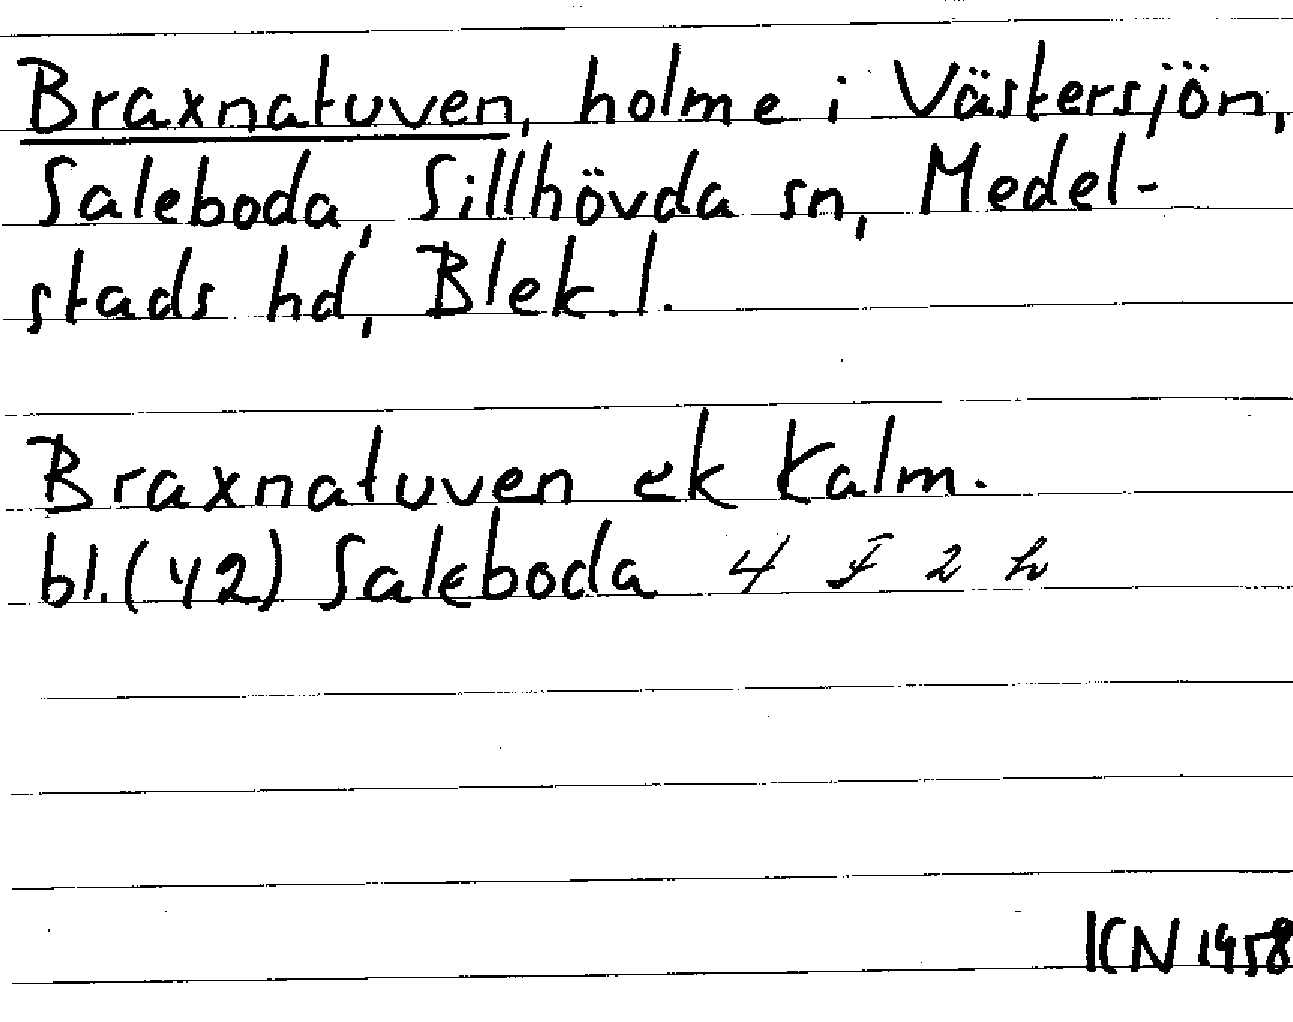 Braxnatuven, holme i Västersjön,
Saleboda, Sillhövda sn, Medel-
stads hd, Blek. l.
Braxnatuven ek Kalm.
bl. (42) Saleboda 4 F 2 h
KN 1958